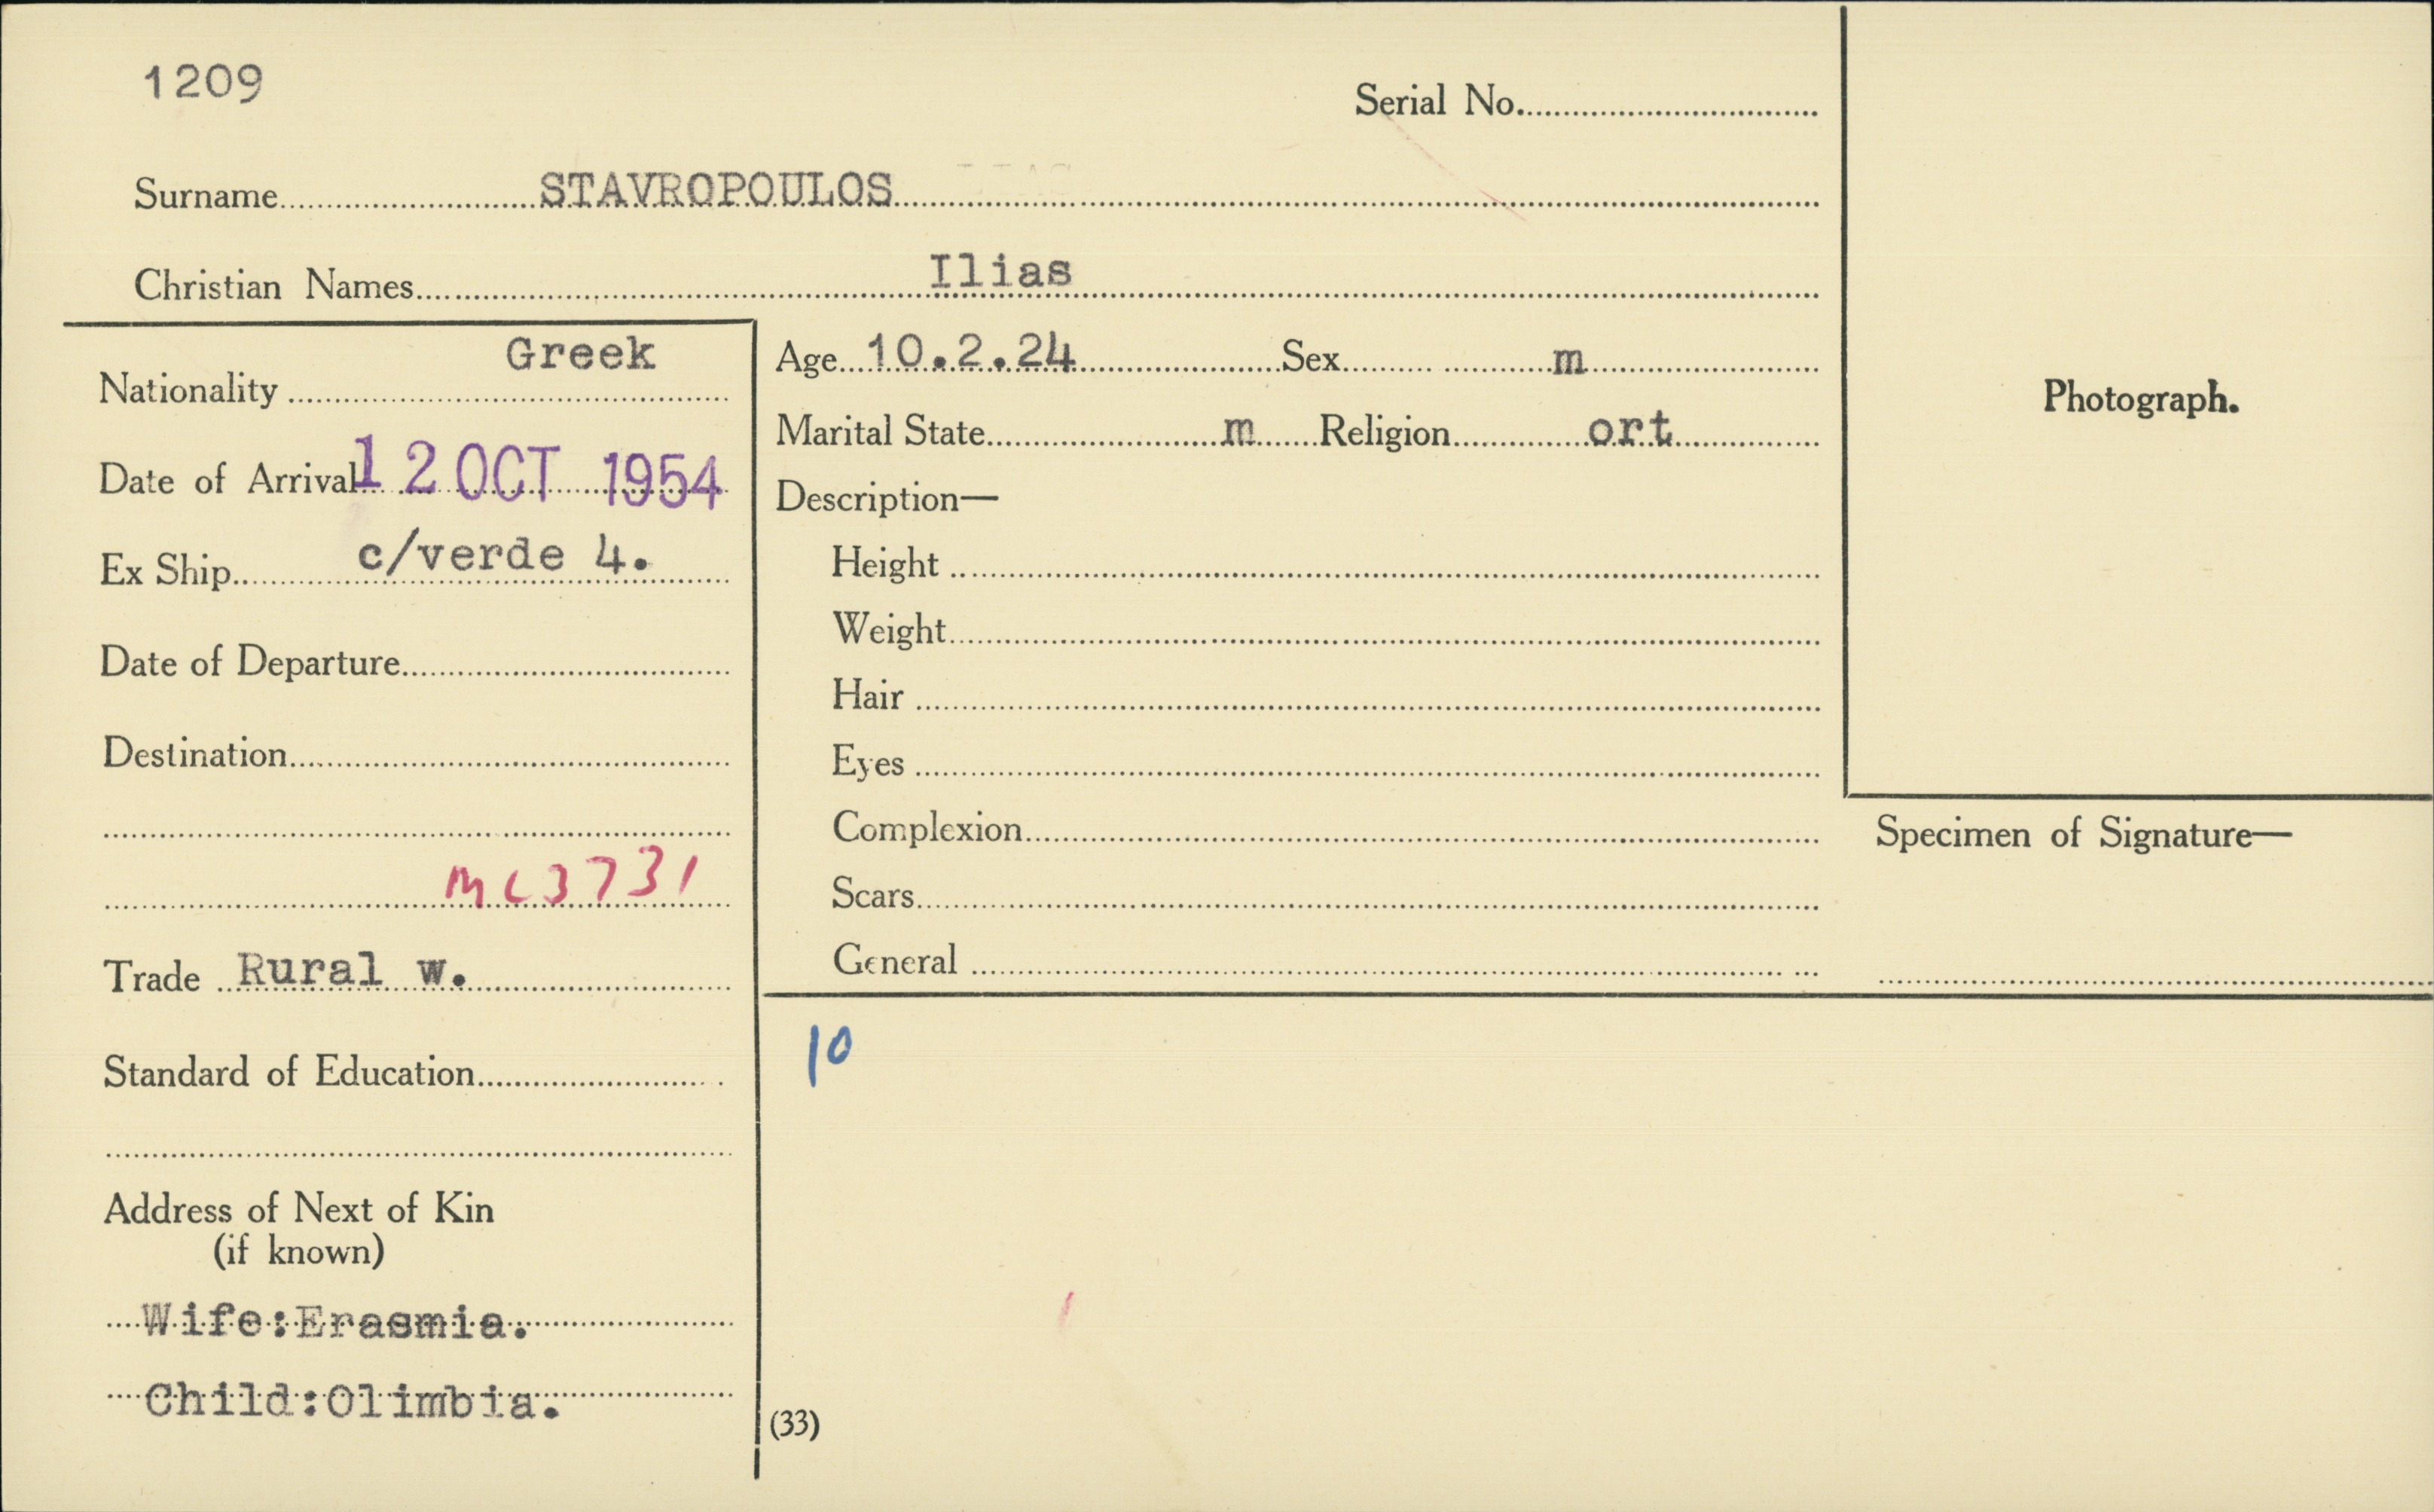 1209
Serial No.
Surname STAVROPOULOS
Christian Names Ilias
Nationality Greek
Date of Arrival 12 OCT 1954
Ex Ship c/verde 4.
Date of Departure
Destination
MC3731
Trade Rural w.
Standard of Education
Address of Next of Kin
(if known)
Wife:Erasmia.
Child:Olimbia.
Age 10.2.24 Sex m
Marital State m Religion ort
Description—
Height
Weight
Hair
Eyes
Complexion
Scars
General
10
(33)
Photograph.
Specimen of Signature—